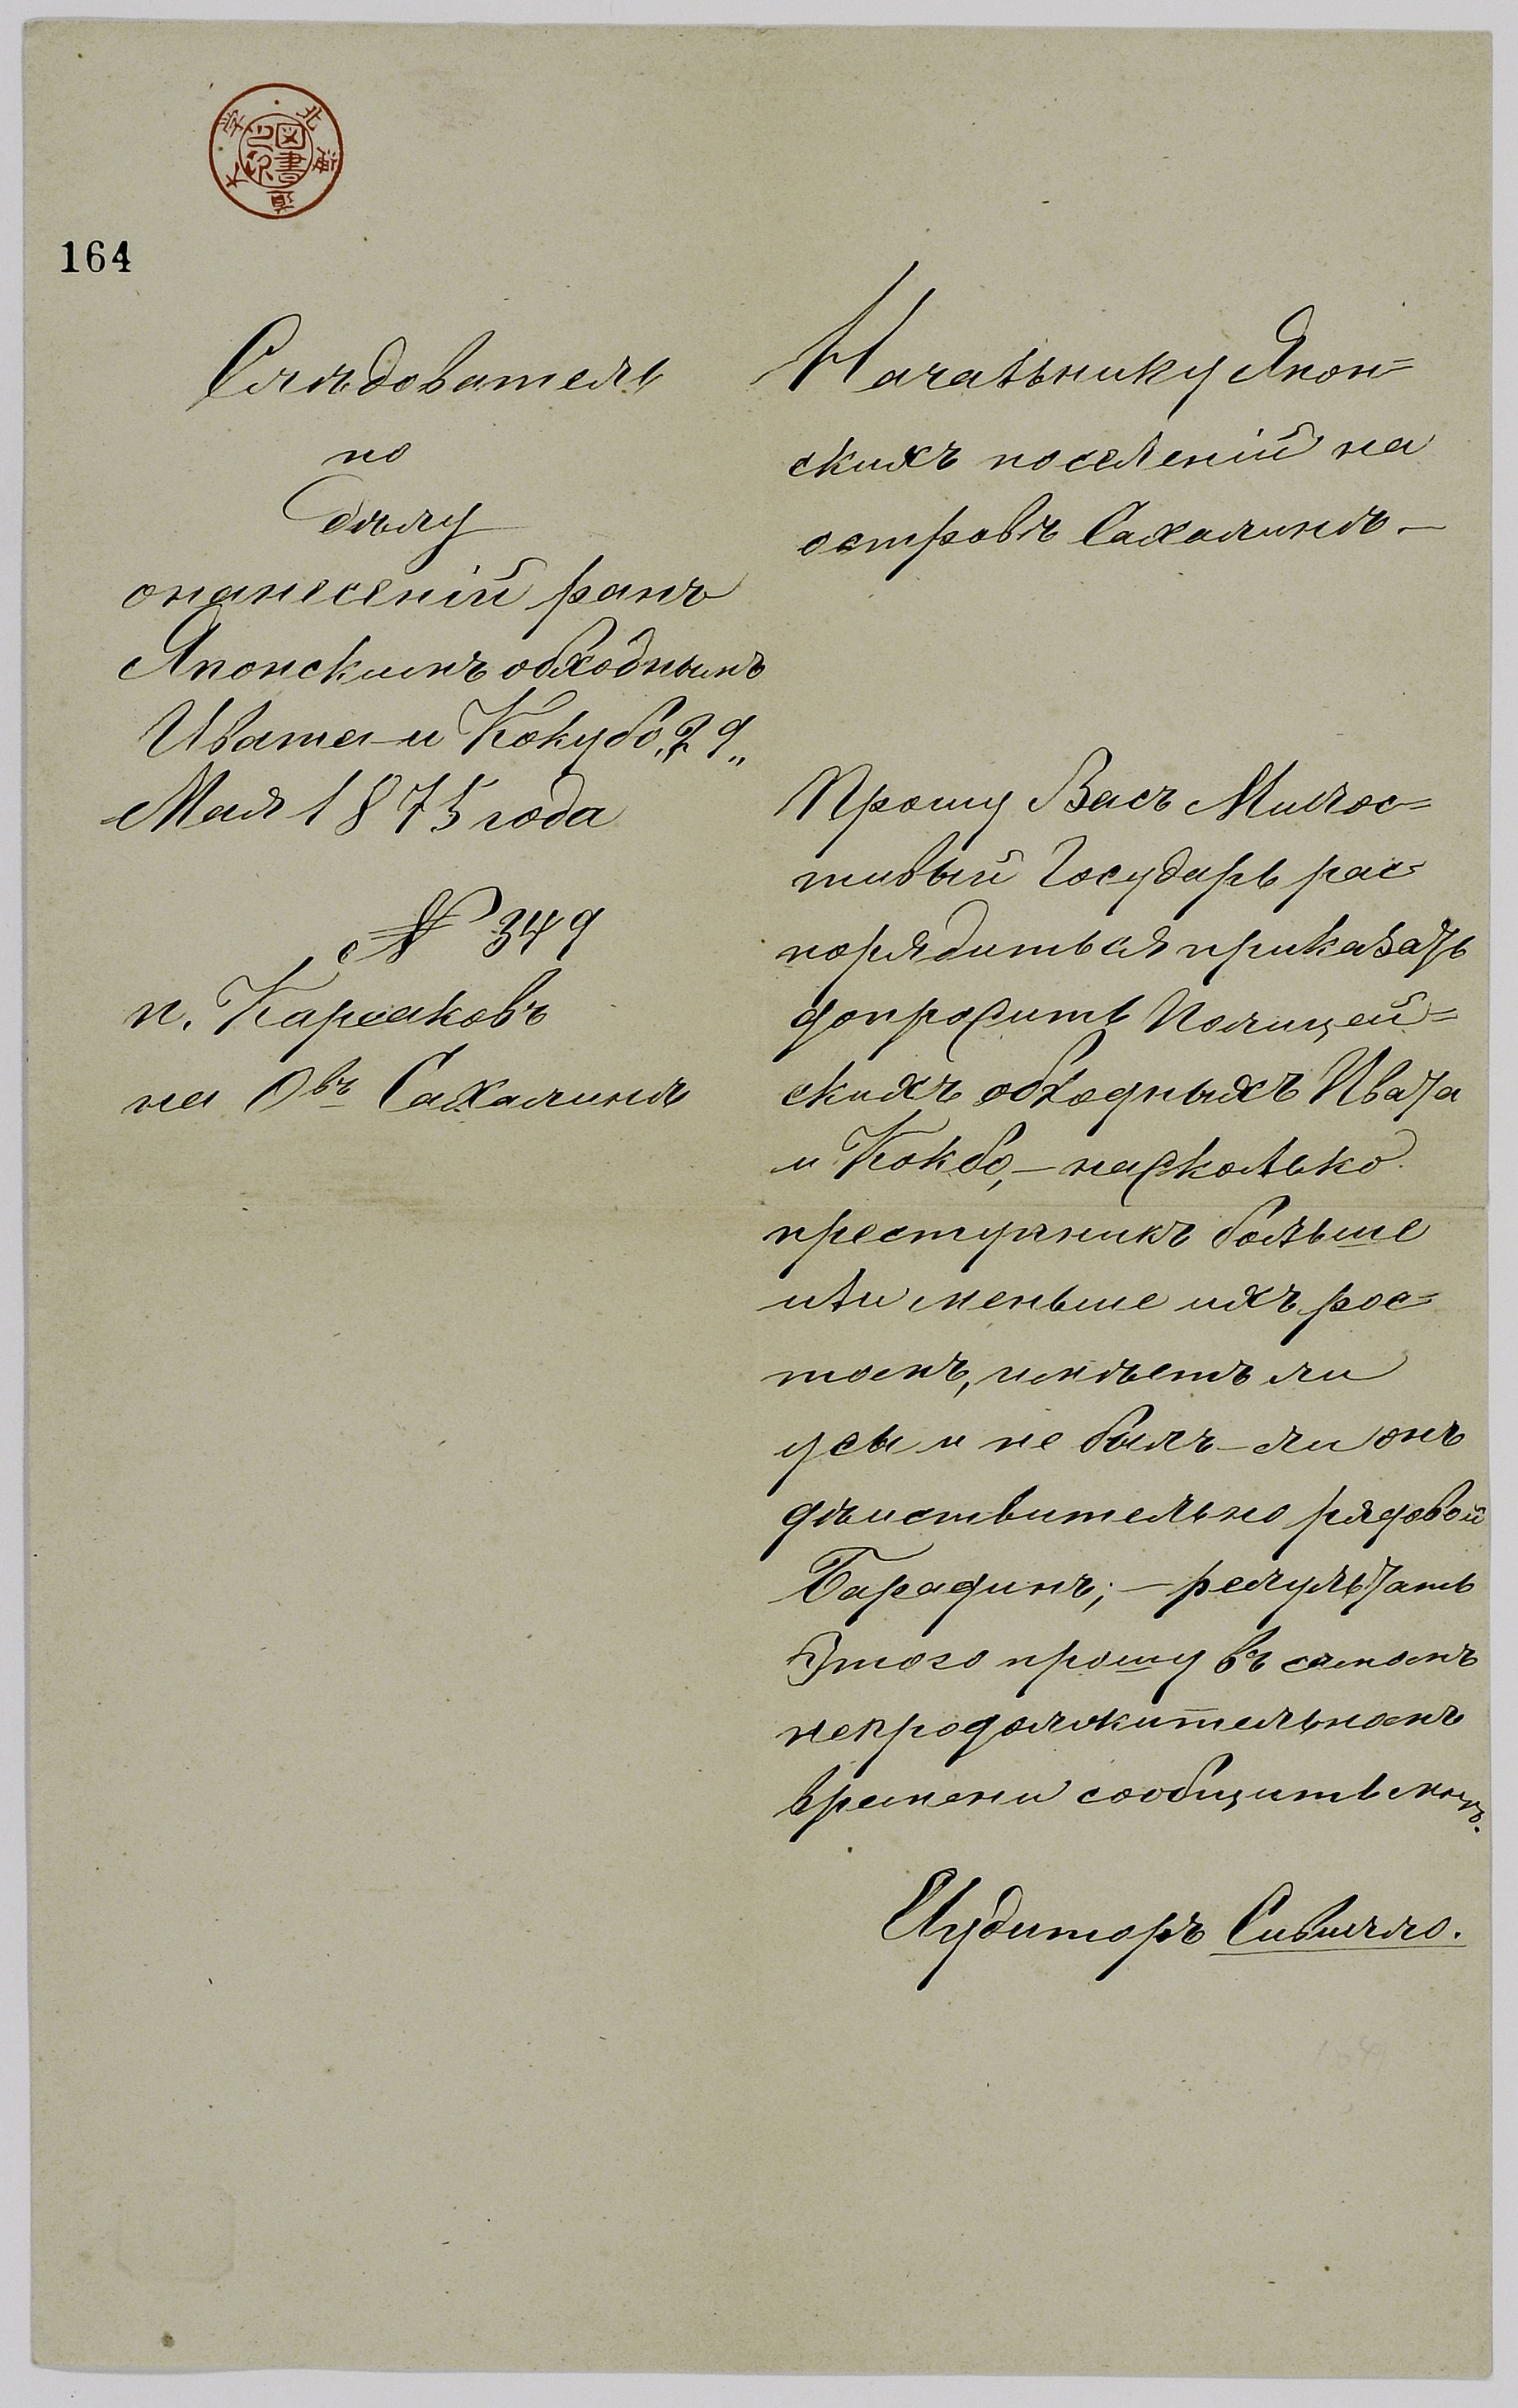 北海
道
大学
図書
之印
164
Слѣдователь
по
дѣлу
онанесеній ранъ
Японскимъ обходнымъ
Ивата и Кокубо „29„
Мая 1875 года
№ 349
п. Карсаковъ
на Овѣ Сахалинѣ
Начальнику Япон=
скихъ поселеній на
островѣ Сахалинѣ.—
Прошу Васъ Милос=
тивый Государь рас=
порядиться приказать
допросить Полицей=
скихъ обходныхъ Ивата
и Кокбо,— насколько
преступникъ больше
или меньше ихъ рос=
томъ, имѣетъ ли
усы и не былъ-ли онъ
дѣиствительно рядовой
Барадинъ;— результатъ
Этого прошу въ самомъ
непродолжительномъ
времени сообщить мнѣ.
Аудиторъ